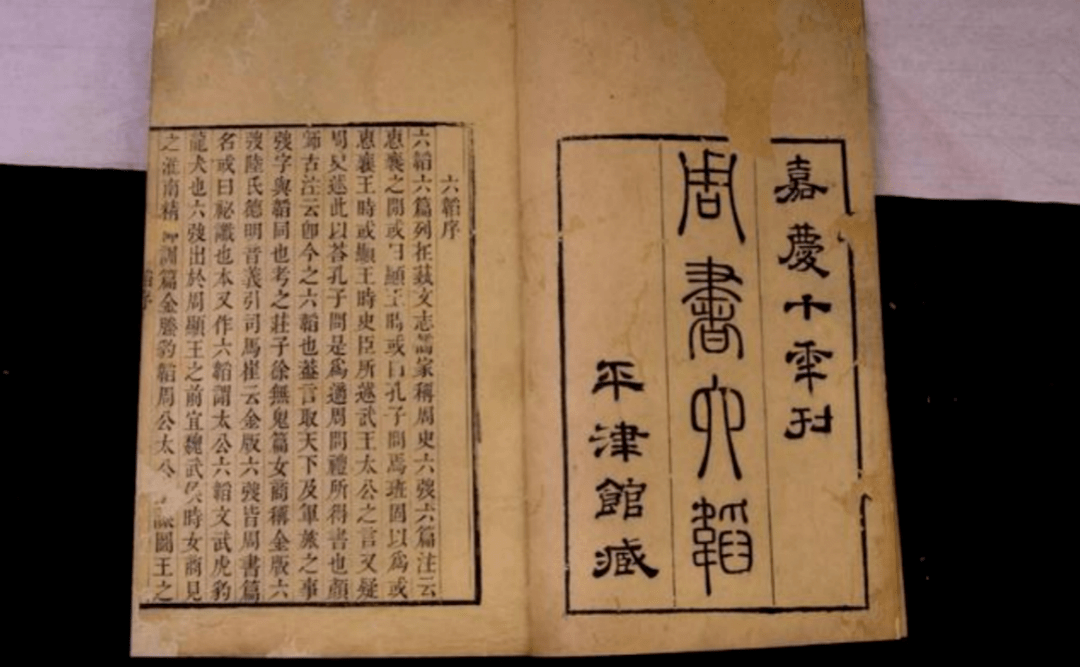 嘉慶十年刊
周書六韜
平津館臧
六韜序
六韜六篇列在蓺文志儒家稱周史六弢六篇注云
惠襄之間或曰顯王時或曰孔子問焉班固以爲或
惠襄王時或顯王時史臣所述武王太公之言又疑
周史述此以荅孔子問是爲適周問禮所得書也顔
師古注云卽今之六韜也葢言取天下及軍旅之事
弢字與韜同也考之莊子徐無鬼篇女商稱金版六
弢陸氏德明音義引司馬崔云金版六弢皆周書篇
名或曰祕讖也本又作六韜謂太公六韜文武虎豹
龍犬也六弢出於周顯王之前宜魏武侯時女商見
之淮南精訓篇金縢豹韜周公太公圖王之